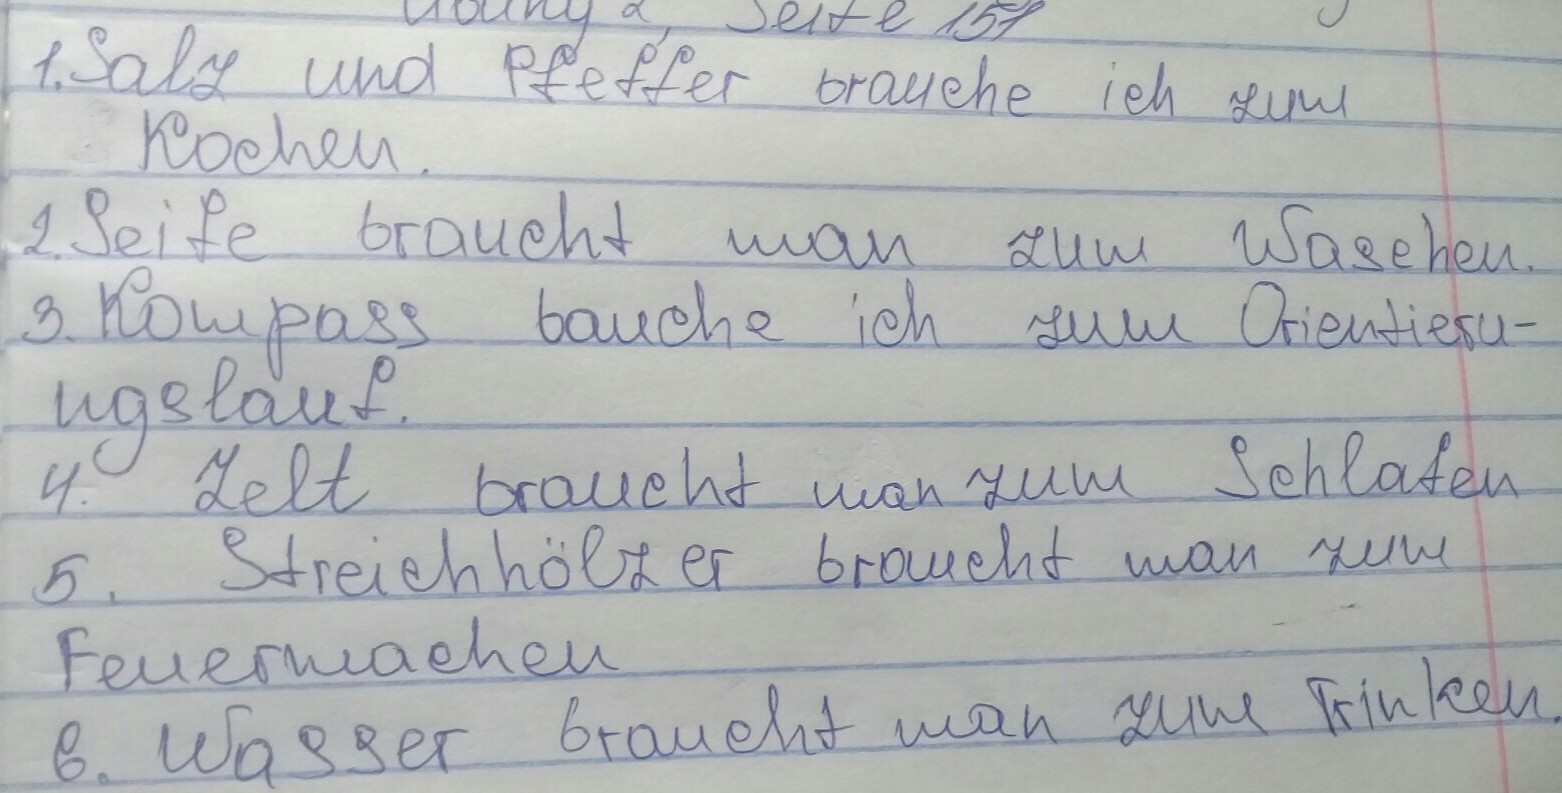 Übung 2, Seite 157
1. Salz und Pfeffer brauche ich zum
Kochen.
2. Seife braucht man zum Waschen.
3. Kompass bauche ich zum Orientieru-
ngslauf.
4. Zelt braucht man zum Schlafen
5. Streichhölzer braucht man zum
Feuermachen
6. Wasser braucht man zum Trinken.